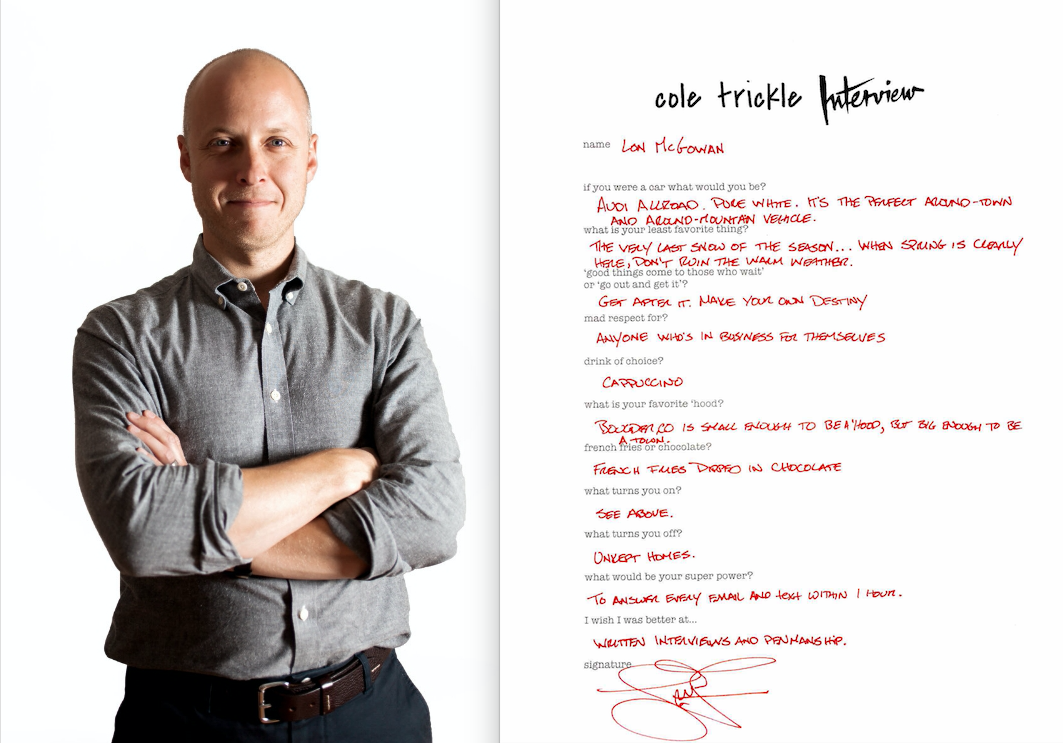 cole trickle Interview
name LON MCGOWAN
if you were a car what would you be?
AUDI ALLROAD. PURE WHITE. IT'S THE PERFECT AROUND-TOWN
AND AROUND-MOUNTAIN VEHICLE.
what is your least favorite thing?
THE VERY LAST SNOW OF THE SEASON... WHEN SPRING IS CLEARLY
HERE, DON'T RUIN THE WARM WEATHER.
'good things come to those who wait'
or 'go out and get it'?
GET AFTER IT. MAKE YOUR OWN DESTINY
mad respect for?
ANYONE WHO'S IN BUSINESS FOR THEMSELVES
drink of choice?
CAPPUCCINO
what is your favorite 'hood?
BOULDER, CO IS SMALL ENOUGH TO BE A 'HOOD, BUT BIG ENOUGH TO BE
A TOWN.
french fries or chocolate?
FRENCH FRIES DIPPED IN CHOCOLATE
what turns you on?
SEE ABOVE.
what turns you off?
UNKEPT HOMES.
what would be your super power?
TO ANSWER EVERY EMAIL AND TEXT WITHIN 1 HOUR.
I wish I was better at...
WRITTEN INTERVIEWS AND PENMANSHIP.
signature